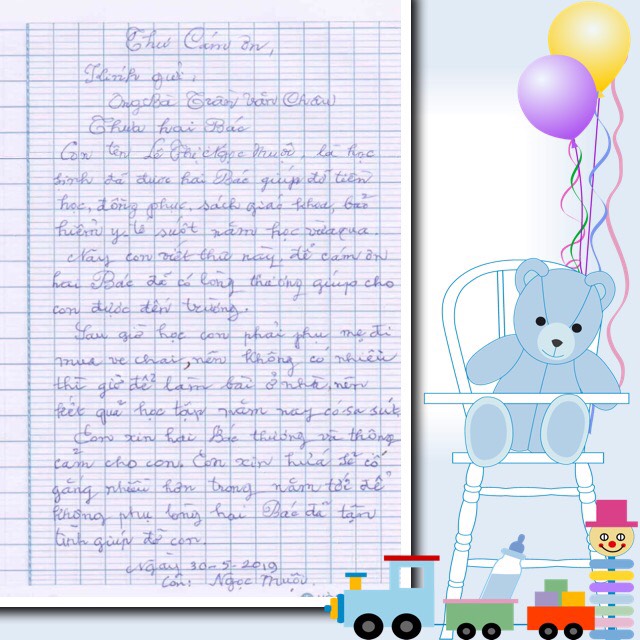 Thư Cám ơn,
Kính gửi,
Ông Bà Trần Văn Châu
Thưa hai Bác
Con tên Lê Thị Ngọc Muội, là học
sinh đã được hai Bác giúp đỡ tiền
học, đồng phục, sách giáo khoa, bảo
hiểm y tế suốt năm học vừa qua.
Nay con viết thư này, để cám ơn
hai Bác đã có lòng thương giúp cho
con được đến trường.
Sau giờ học con phải phụ mẹ đi
mua ve chai, nên không có nhiều
thì giờ để làm bài ở nhà, nên
kết quả học tập năm nay có sa sút
Con xin hai Bác thương và thông
cảm cho con. Con xin hứa sẽ cố
gắng nhiều hơn trong năm tới để
không phụ lòng hai Bác đã tận
tình giúp đỡ con.
Ngày 30-5-2019
Con: Ngọc Muội